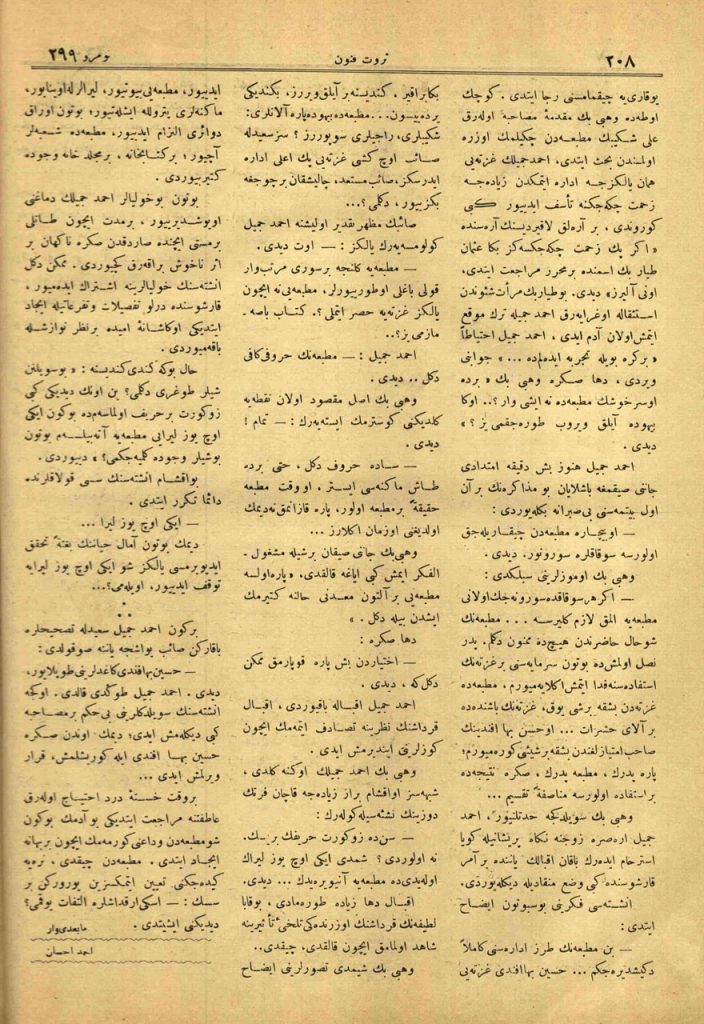 ٢٠٨
ثروت فنون
نومرو ٢٩٩
یوقاری‌یه چیقمامسنی رجا ایتدی . کوچك
اوطه‌ده وهبی بك مقدمهٔ مصاحبه اوله‌رق
علی شکیبك مطبعه‌دن چکیلمك اوزره
اولمسندن بحث ایتدی، احمدجمیلك غزته‌یی
همان یالکزجه اداره ایتمکدن زیاده‌جه
زحمت چکه‌جکنه تأسف ایدییور کبی
کوروندی ، بر آره‌لق لاقیردیسنك آره‌سنده
« اکر پك زحمت چکه‌جکسه‌کز بکا عثمان
طیار بك اسمنده بر محرر مراجعت ایتدی،
اونی آلیرز » دیدی. بوطیاربك مرأت شئوندن
استثقاله اوغرایه‌رق احمد جمیله ترك موقع
ایتمش اولان آدم ایدی ، احمد جمیل احتیاطاً
« برکره بویله تجربه ایده‌لم‌ده ... » جوابی
ویردی ، دها صکره وهبی بك « برده
اوسرخوشك مطبعه‌ده نه ایشی وار؟.. اوکا
بیهوده آیلق ویروب طوره‌جقمی‌یز ؟ »
دیدی .
احمد جمیل هنوز بش دقیقه امتدادی
جانی صیقمغه باشلایان بو مذاکره‌نك بر آن
اول بیتمه‌سنی بی‌صبرانه بکله‌یوردی :
— اوبیچاره مطبعه‌دن چیقاریله‌جق
اولورسه سوقاقلره سورونور، دیدی .
وهبی بك اوموزلرینی سیلکدی :
— اکر هر سوقاقده سورونه‌جك اولانی
مطبعه‌یه المق لازم کلیرسه ... مطبعه‌نك
شوحال حاضرندن هیچ‌ده ممنون دکلم. پدر
نصل اولمش‌ده بوتون سرمایه‌سنی بر غزته‌نك
استفاده‌سنه فدا ایتمش اکلایه‌میورم، مطبعه‌ده
غزته‌دن بشقه برشی یوق، غزته‌نك باشنده‌ده
بر آلای حشرات ... اوحسن بها افندینك
صاحب امتیازلغندن بشقه برشیئنی کوره‌میورم؛
پاره پدرك ، مطبعه پدرك ، صکره نتیجه‌ده
بر استفاده اولورسه مناصفةً تقسیم ...
وهبی بك سویلدکجه حدتلنیور، احمد
جمیل اره‌صره زوجنه نکاه پریشانیله کویا
استرحام ایده‌رك باقان اقبالك یاننده بر آمر
قارشوسنده کبی وضع منقادیله دیکله‌یوردی.
انشته‌سی فکرینی بوسبوتون ایضاح
ایتدی :
— بن مطبعه‌نك طرز اداره‌سنی کاملاً
دکیشدیره‌جکم ... حسین بها افندی غزته‌یی
بکابراقیر ، کندیسنه بر آیلق ویررز، بکندیکی
یرده ییسون... مطبعه‌ده بیهوده پاره آلانلری :
شکیبلری، راجیلری سویوررز ؟ سزسعیدله
صائب اوچ کشی غزته‌یی پك اعلی اداره
ایدرسکز، صائب مستعد، چالیشقان بر چوجغه
بکزییور ، دکلمی ؟...
صائبك مظهر تقدیر اولیشنه احمد جمیل
کولومسه‌یه‌رك یالکز : — اوت دیدی .
— مطبعه‌یه کلنجه برسوری مرتب‌وار
قولی باغلی اوطورییورلر، مطبعه‌یی نه ایچون
یالکز غزته‌یه حصر ایتملی ؟. کتاب باصه .
مازمی‌یز ؟..
احمد جمیل : — مطبعه‌نك حروفی کافی
دکل .. دیدی .
وهبی بك اصل مقصود اولان نقطه‌یه
کلدیکنی کوسترمك ایسته‌یه‌رك : — تمام !
دیدی .
— ساده حروف دکل ، حتی برده
طاش ماکنه‌سی ایستر ، او وقت مطبعه
حقیقةً بر مطبعه اولور، پاره قازانمق نه‌دیمك
اولدیغنی اوزمان اکلارز ...
وهبی‌بك جانی صیقان برشیله مشغول .
الفکر ایمش کبی ایاغه قالقدی، « پاره اولسه
مطبعه‌یی بر آلتون معدنی حالنه کتیرمك
ایشدن بیله دکل . »
دها صکره :
— اختیاردن بش پاره قوپارمق ممکن
دکل که ، دیدی .
احمد جمیل اقباله باقیوردی ، اقبال
قرداشنك نظرینه تصادف ایتمه‌مك ایچون
کوزلرینی ایندیرمش ایدی .
وهبی بك احمد جمیلك اوکنه کلدی ،
شبهه‌سز اواقشام براز زیاده‌جه قاچان فرتك
دوزینك نشئه‌سیله کوله‌رك :
— سن‌ده زوکورت حریفك بریسك.
نه اولوردی ؟ شمدی ایکی اوچ یوز لیراك
اوله‌یدی‌ده مطبعه‌یه آتیویره‌یدك ... دیدی .
اقبال دها زیاده طوره‌مادی ، بوقابا
لطیفه‌نك قرداشنك اوزرنده‌کی تلخی تأثیرینه
شاهد اولمامق ایچون قالقدی، چیقدی..
وهبی بك شیمدی تصورلرینی ایضاح
ایدییور، مطبعه‌یی بیوتیور، لیرالرله اوینایور،
ماکنه‌لری پترولله ایشله‌تیور، بوتون اوراق
دوائری التزام ایدییور، مطبعه‌ده شعبه‌لر
آچیور ، برکتابخانه ، بر مجلد خانه وجوده
کتیرییوردی .
بوتون بوخولیالر احمد جمیلك دماغنی
اویوشدیرییور ، برمدت ایچون طاتلی
برمستی ایچنده صاردقدن صکره ناکهان بر
اثر ناخوش براقه‌رق کچیوردی . ممکن دکل
انشته‌سنك خولیالرینه اشتراك ایده‌میور ،
قارشوسنده درلو تفصیلات وتفرعاتیله ایجاد
ایتدیکی اوکاشانهٔ امیده برنظر نوازشله
باقه‌میوردی .
حال بوکه کندی کندیسنه : « بوسویلنن
شیلر طوغری دکلمی؟ بن اونك دیدیکی کبی
زوکورت بر حریف اولماسه‌م‌ده بوکون ایکی
اوچ یوز لیرایی مطبعه‌یه آته‌بیلسه‌م بوتون
بوشیلر وجوده کلمیه‌جکمی ؟ » دییوردی .
بواقشام انشته‌سنك سسی قولاقلرنده
دائما تکرر ایتدی .
— ایکی اوچ یوز لیرا ...
دیمك بوتون آمال حیاتنك بغتةً تحقق
ایدیویرمسی یالکز شو ایکی اوچ یوز لیرایه
توقف ایدییور، اویله‌می؟...
*
* *
برکون احمد جمیل سعیدله تصحیحلره
باقارکن صائب یواشجه یاننه صوقولدی :
— حسین بها افندی کاغدلرینی طوپلایور،
دیدی . احمد جمیل طوکدی قالدی . اوکیجه
انشته‌سنك سویلدکلرینی بی‌حکم بر مصاحبه
کبی دیکله‌مش ایدی؛ دیمك اوندن صکره
حسین بها افندی ایله کوریشلمش، قرار
ویرلمش ایدی ...
بروقت خستهٔ درد احتیاج اوله‌رق
عاطفتنه مراجعت ایتدیکی بو آدمك بوکون
شومطبعه‌دن وداعنی کورمه‌مك ایچون بر بهانه
ایجاد ایتدی . مطبعه‌دن چیقدی ، نره‌یه
کیده‌جکنی تعیین ایتمکسزین یورورکن بر
سسك : — اسکی ارقداشلره التفات یوقمی؟
دیدیکنی ایشیتدی .
مابعدی‌وار
احمد احسان